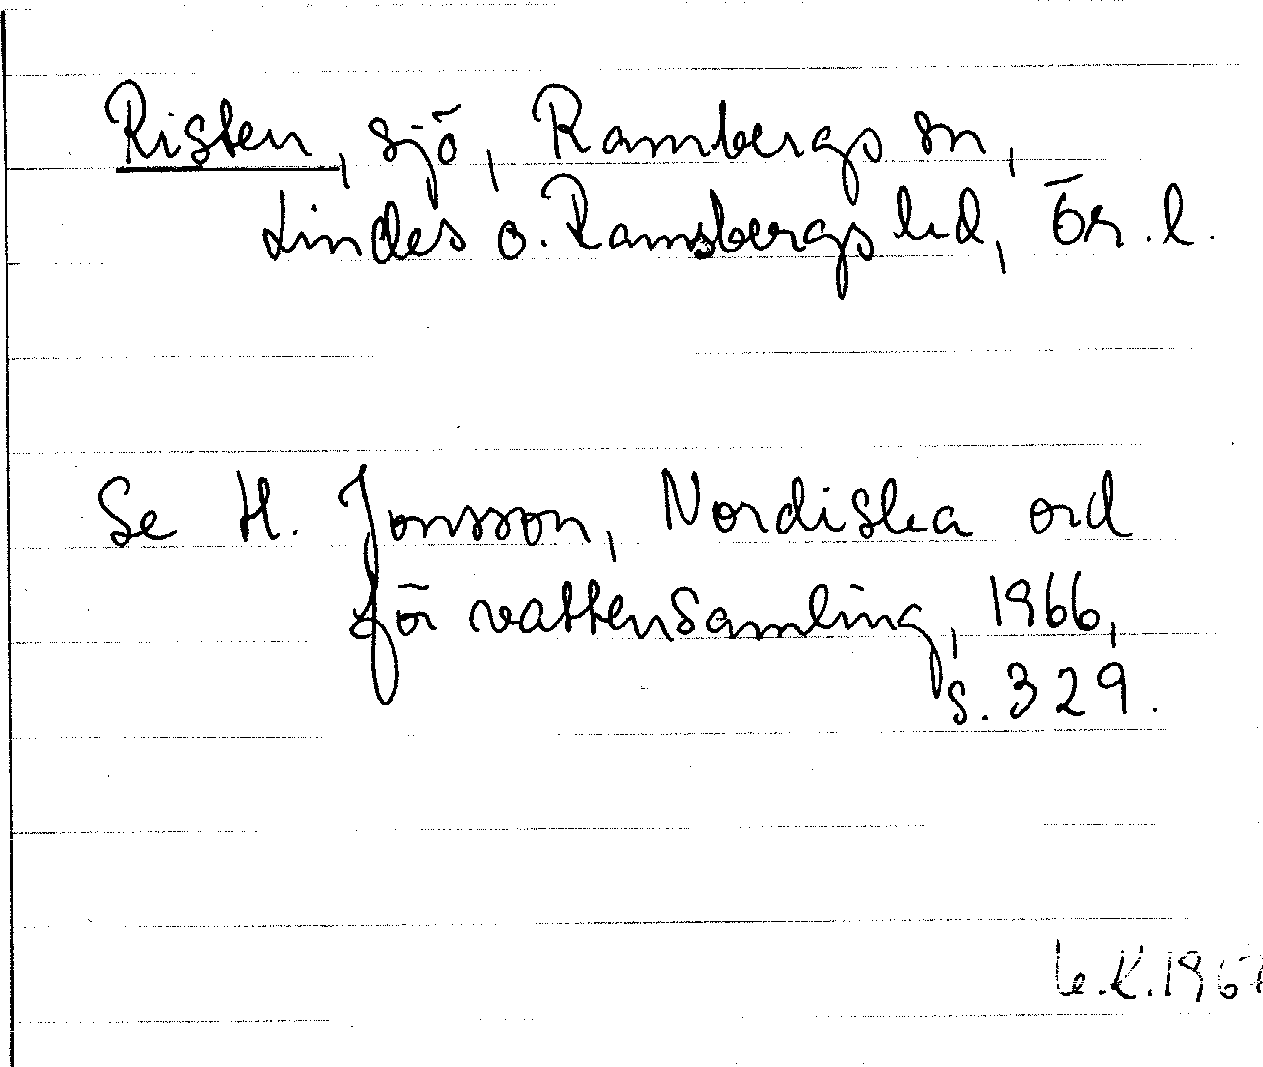 Risten, sjö, Rambergs sn,
Lindes o. Ramsbergs hd, Ör. l.
Se H. Jonsson, Nordiska ord
för vattensamling, 1966,
s. 329.
K. 1967